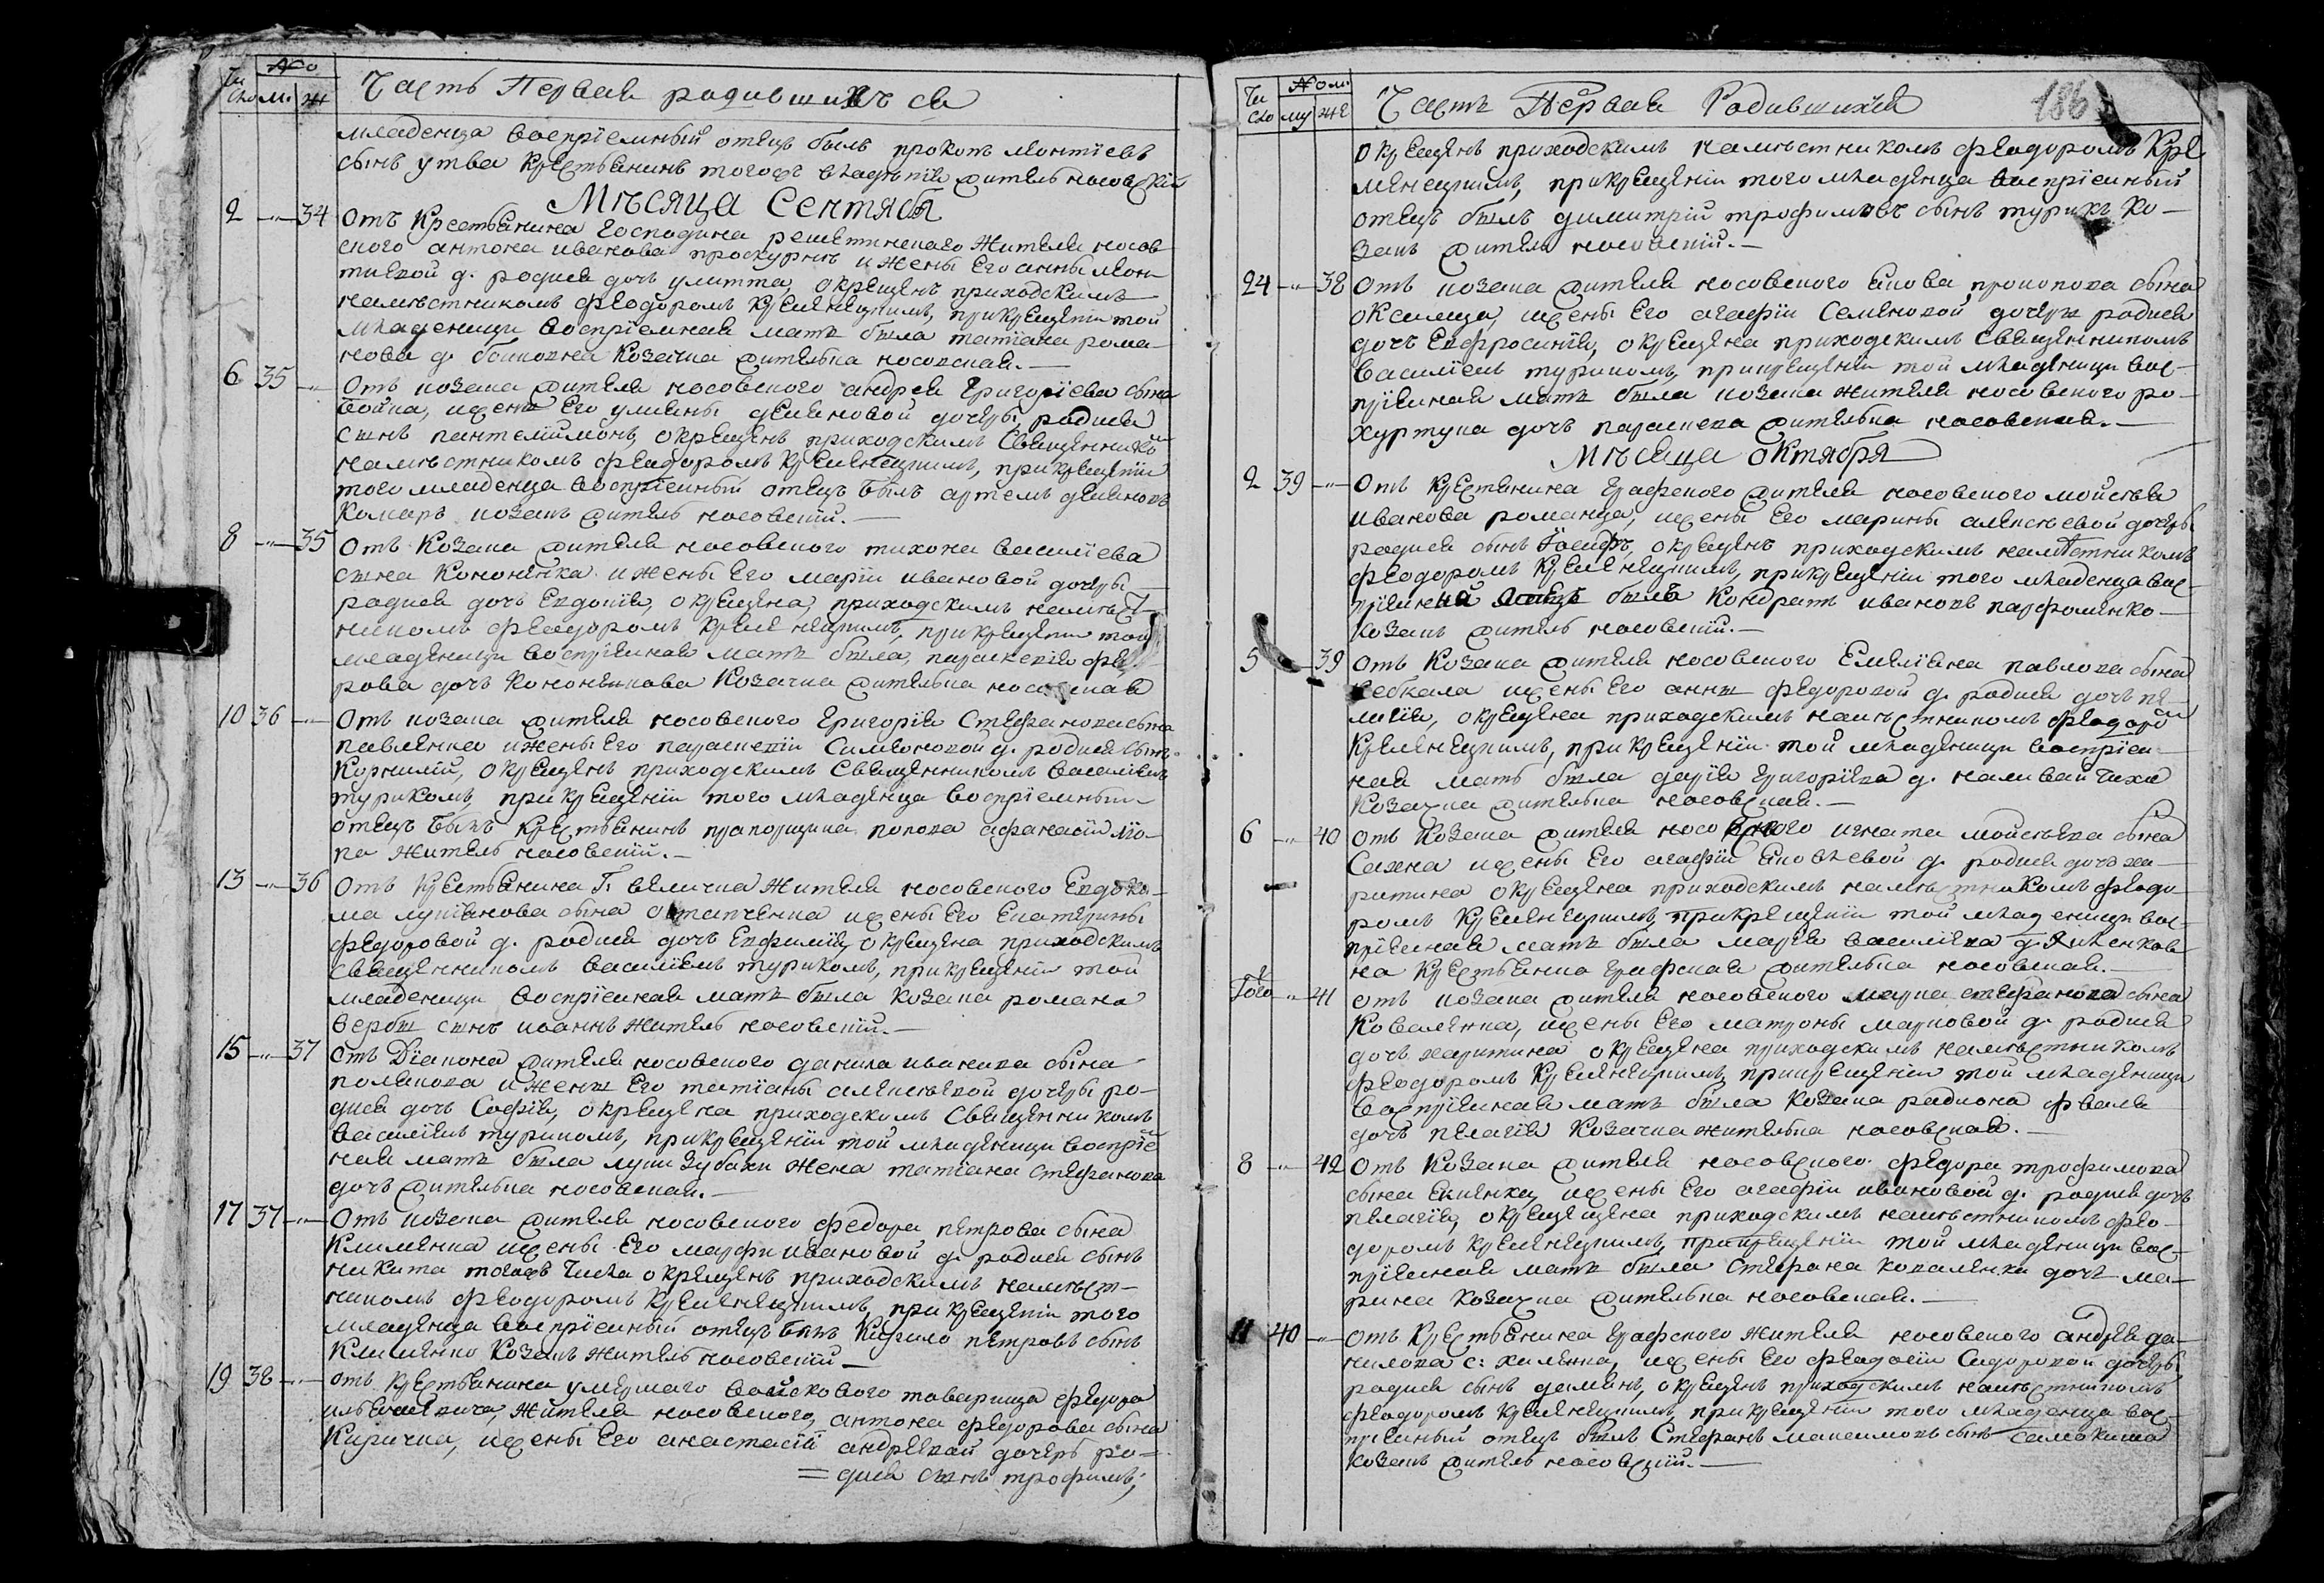 Чи
сло
No
м.
ж
Часть Первая родившихъ ся
младенца воспріемный отецъ былъ прокопъ леонтіевъ
сынъ утва крестьянинъ тогожъ владѣнія житель носовскій
Мѣсяца Сентяб
2 —"— 34 Отъ Крестьянина господина решетинского Жителя носов
ского антона иванова проскурнѣ и жены Его анны леон
тиевой д. родися дочъ улитта, окрещенъ приходскимъ
намѣстникомъ феодоромъ кременецкимъ, прикрещеніи той
младеници воспріемная мать была татіана рома-
нова д. боиковна Козачка жителька носовская.—
6 35 —"— Отъ козака жителя носовского андрея григоріева сына
бойка, ижены Его улияны демяновой дочеры родися
сынъ пантелиимонъ, окрещенъ приходскимъ Священнико
намѣстникомъ феодоромъ кременецкимъ, прикрещеніи
того младенца воспріемный отецъ былъ артемъ демяновъ
Комаръ козакъ житель носовскій.—
8 —"— 35 Отъ Козака жителя носовского тихона василіева
сына Кононенка ижены Его маріи ивановой дочеры
родися дочъ Евдокія, окрещена, приходскимъ намѣст
никомъ феодоромъ кременецкимъ, прикрещеніи той
младеници воспріемная мать была, параскевія фео
рова дочъ кононенкова Козачка жителька носовская
10 36 —"— Отъ козака жителя носовского григорія Стефанова сына
павленка ижены Его параскевіи Симеоновой д. родися сынъ
Корнилій, окрещенъ приходскимъ Священникомъ василіемъ
турикомъ, прикрещеніи того младенца воспріемный
отецъ былъ крестьянинъ прапорщика попова афанасій
па житель носовскій.—
13 —"— 36 Отъ Крестьянина Г. величка жителя носовского Евдоки-
ма лукіянова сына остапченка ижены Его Екатерины
федоровой д. родися дочъ Евфимія, окрещена приходскимъ
священникомъ василіемъ турикомъ, прикрещеніи той
младеници воспріемная мать была козака романа
вербы сынъ иоаннъ житель носовскій.—
15 —"— 37 Отъ Діакона жителя носовского данила иванова сына
полянова ижены Его татіаны алексѣевой дочеры ро-
дися дочъ Софія, окрещена приходскимъ Священникомъ
василіемъ турикомъ, прикрещеніи той младеници воспріе
ная мать была луки зубахи жена татіана Стефанова
дочъ жителька носовская.—
17 37 —"— Отъ козака жителя носовского федора петрова сына
Клименка ижены Его марфи ивановой д. родися сынъ
никита тогожъ числа окрещенъ приходскимъ намѣст-
никомъ феодоромъ кременецкимъ, прикрещеніи того
младенца воспріемный отецъ былъ Кирило петровъ сынъ
Клименко Козакъ житель носовскій —
19 38 —"— отъ крестьянина умермаго войскового товарища федора
жителя носовского, антона федорова сына
Киричка, ижены Его анастасіи андреевой дочерѣ ро=
=дися сынъ трофимъ,
Чи
сло
Nом.
му
же
Часть Первая Родившихся
186
окрещенъ приходскимъ намѣстникомъ феодоромъ Кре
менецкимъ, прикрещеніи того младенца воспріемный
отецъ былъ димитрій трофимовъ сынъ турикъ ко-
закъ житель носовскій.—
24 —"— 38 Отъ козака жителя носовского Якова прокопова сына
ижены Его агафіи Семеновой дочерѣ родися
дочъ Евфросинія, окрещена приходскимъ Священникомъ
василіемъ турикомъ, прикрещеніи той младеници вос-
пріемная мать была козака жителя носовского ро-
хуртуна дочъ параскева жителька носовская.—
Мѣсяца Октября
2 39 —"— Отъ крестянина графского жителя носовского мойсея
иванова романца, ижены Его марины алексѣевой дочеры
родися сынъ Іосифъ, окрещенъ приходскимъ намѣстникомъ
феодоромъ кременецкимъ, прикрещеніи того младенца вос-
пріемный отецъ былъ Кондратъ ивановъ парфоменко
козакъ житель носовскій.—
5 — 39 Отъ Козака жителя носовского Емеліяна павлова сына
ижены Его анны федоровой д. родися дочъ пе-
лагія, окрещена приходскимъ намѣстникомъ феодоро
кременецкимъ, прикрещеніи той младеници воспріем
ная мать была дарія григоріева д. наливайчиха
козачка жителька носовская.—
6 —"— 40 Отъ Козака жителя носовского игната мойсѣева сына
Сахна ижены Его агафіи Яковлевой д. родися дочъ ха-
ритина окрещена приходскимъ намѣстникомъ феодо
ромъ кременецкимъ, прикрещеніи той младеници вос-
пріемная мать была марія василіева д.
на крестьянка графская жителька носовская.—
Того —"— 41 отъ козака жителя носовского марка стефанова сына
Коваленка, ижены Его матроны марковой д. родися
дочъ харитина окрещена приходскимъ намѣстникомъ
феодоромъ кременецкимъ, прикрещеніи той младеници
Воспріемная мать была козака радиона
дочъ пелагія Козачка жителька носовская.—
8 —"— 42 Отъ Козака жителя носовского федора трофимова
сына ижены Его агафіи ивановой д. родися дочъ
пелагія, окрещена приходскимъ намѣстникомъ фео-
доромъ кременецкимъ, прикрещеніи той младеници вос-
пріемная мать была Стефана коваленка дочъ ма-
рина козачка жителька носовская.—
11 40 —"— Отъ Крестьянина графского жителя носовского андрея да-
нилова с: хиленка, ижены Его феодосіи Сидоровой дочеры
родися сынъ дамянъ, окрещенъ приходскимъ намѣстникомъ
феодоромъ кременецкимъ, прикрещеніи того младенца вос-
пріемный отецъ былъ Стефанъ максимовъ сынъ Самокиша
козакъ житель носовскій.—